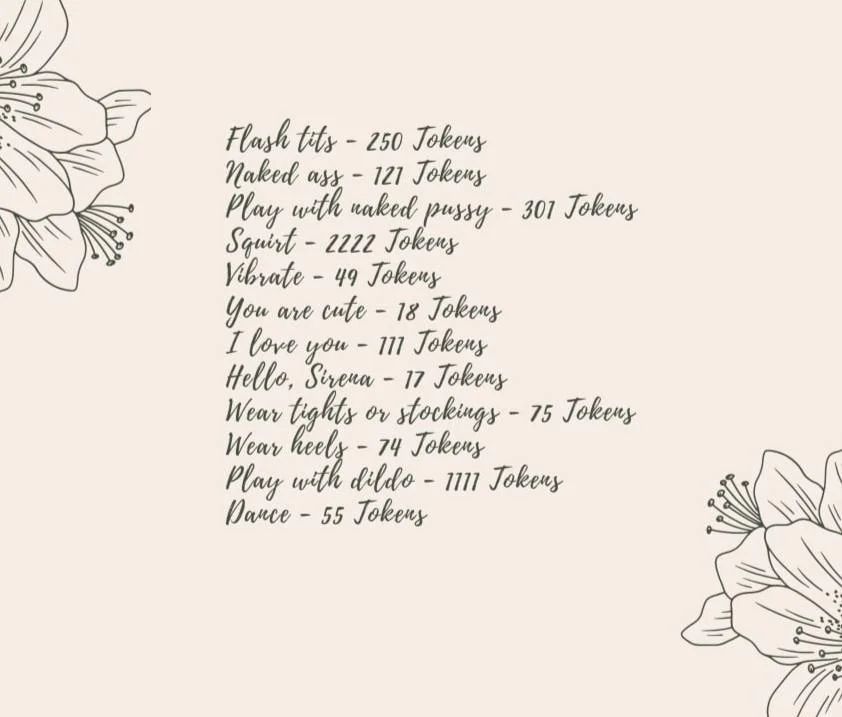 Flash tits - 250 Tokens
Naked ass - 121 Tokens
Play with naked pussy - 301 Tokens
Squirt - 2222 Tokens
Vibrate - 49 Tokens
You are cute - 18 Tokens
I love you - 111 Tokens
Hello, Sirena - 17 Tokens
Wear tights or stockings - 75 Tokens
Wear heels - 74 Tokens
Play with dildo - 1111 Tokens
Dance - 55 Tokens